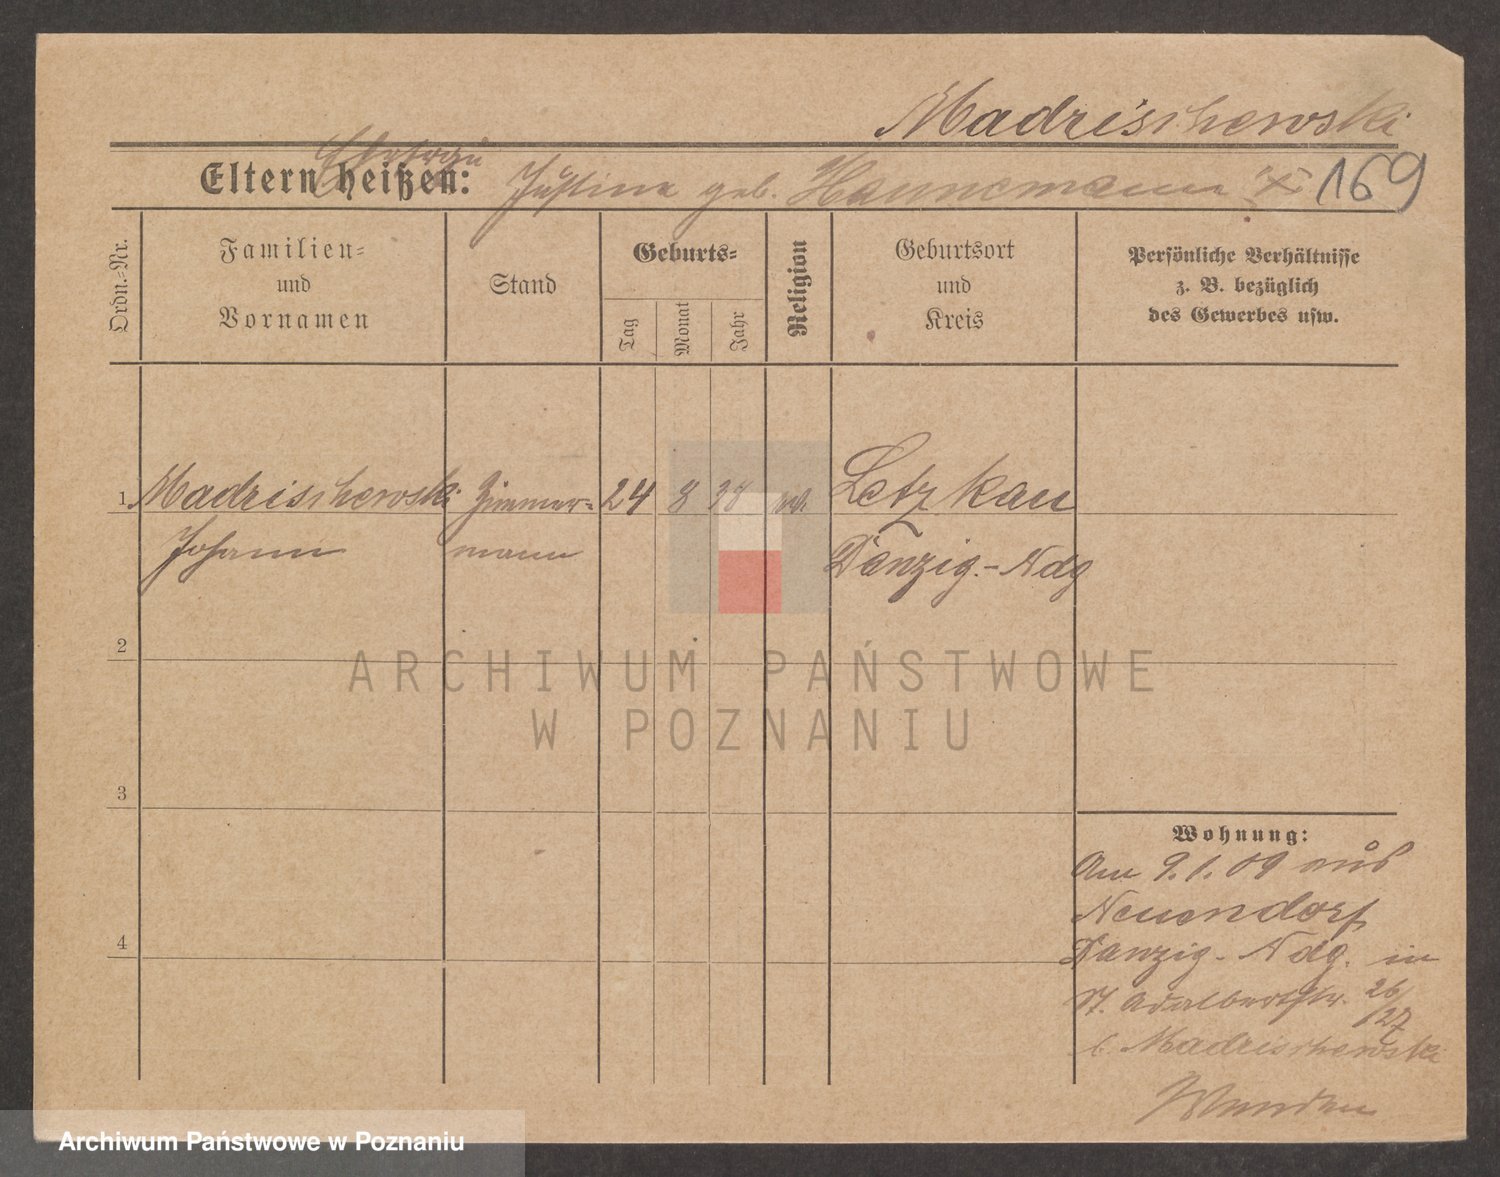 Madrischewski
Eltern heißen: Justine geb. Hannemann
169
Ordn.-Nr.
Familien-
und
Vornamen
Stand
Geburts-
Tag
Monat
Jahr
Religion
Geburtsort
und
Kreis
Persönliche Verhältnisse
z. B. bezüglich
des Gewerbes usw.
1 Madrischewski Zimmer- 24 8 38 Letzkau
Johann mann Danzig.-Ndg
2
3
4
Wohnung:
Am 9.1.09 aus
Neuendorf
Danzig-Ndg. in
St. Adalbertstr. 26/27
b. Madrischewski
ARCHIWUM PAŃSTWOWE
W POZNANIU
Archiwum Państwowe w Poznaniu